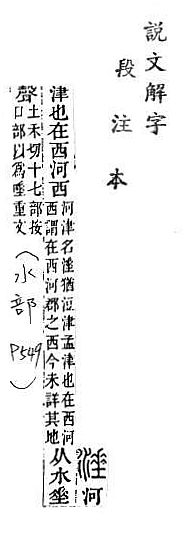 說文解字
段注本
涶河
津也在西河西
河津名涶猶津孟津也在西河
西謂在西河郡之西今未詳其地
从水垂
聲
土禾切十七部按
口部以爲唾重文
(水部 P549)